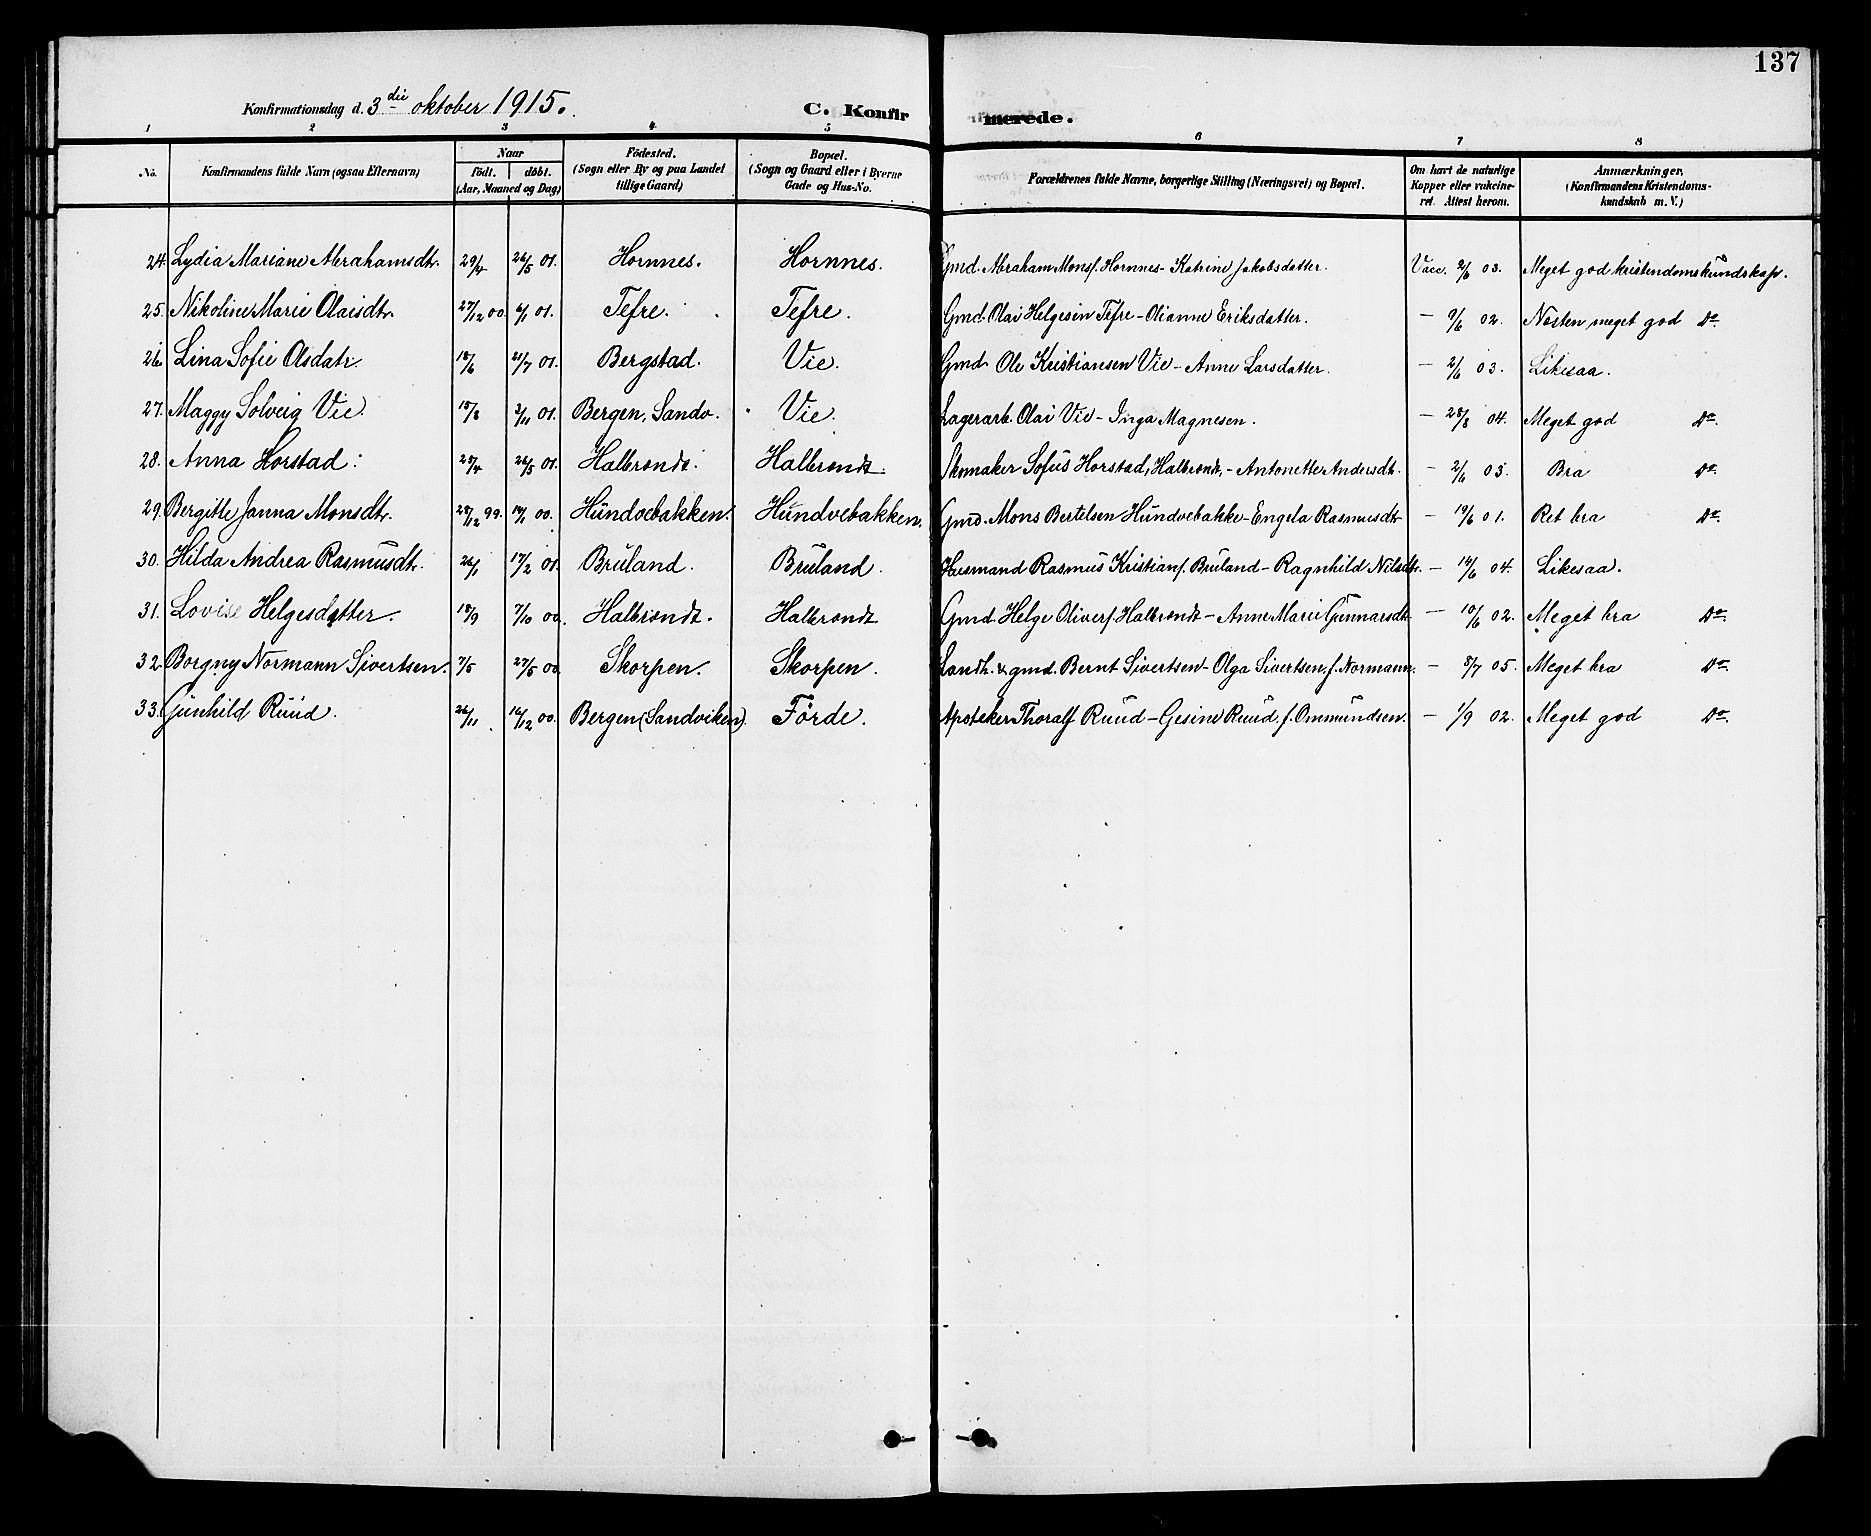 137
Konfirmationsdag d. 3die oktober 1915. C. Konfirmerede.
1 2 3 4 5 6 7 8
No. Konfirmandens fulde Navn (ogsaa Efternavn) Naar født. døbt. (Aar, Maaned og Dag) Födested. (Sogn eller By og paa Landet tillige Gaard) Bopæl. (Sogn og Gaard eller i Byerne Gade og Hus-No. Forældrenes fulde Navne, borgerlige Stilling (Næringsvei) og Bopæl. Om havt de naturlige Kopper eller vakcineret. Attest herom. Anmærkninger, (Konfirmandens Kristendomskundskab m. V.)
24. Lydia Mariane Abrahamsdtr. 29/4 26/5 01. Hornnes. Hornnes. Gmd. Abraham Monsf. Hornnes - Katrine Jakobsdatter. Vacc. 2/6 03. Meget god kristendomskundskap.
25. Nikoline Marie Olaisdtr. 27/12 00. 6/1 01. Tefre. Tefre. Gmd. Olai Helgesen Tefre - Olianne Eriksdatter. - 9/6 02. Næsten meget god Do.
26. Lina Sofie Olsdatr. 18/6 21/7 01. Bergstad. Vie. Gmd. Ole Kristiansen Vie - Anne Larsdatter. - 2/6 03. Likesaa.
27. Maggy Solveig Vie. 18/8 3/11 01. Bergen, Sandv. Vie. Lagerarb. Olai Vie - Inga Magnesen. - 28/8 04. Meget god Do.
28. Anna Horstad. 28/4 26/5 01. Halbrendt. Halbrendt. Skomaker Sofus Horstad, Halbrendt, - Antonette Andersdt. - 2/6 03. Bra Do.
29. Bergitte Janna Monsdtr. 28/12 99. 14/1 00. Hundvebakken. Hundvebakken. Gmd. Mons Bertelsen Hundvebakke - Engela Rasmusdtr - 19/6 01. Ret bra Do.
30. Hilda Andrea Rasmusdtr. 26/1 17/2 01. Bruland. Bruland. Husmand Rasmus Kristianf. Bruland - Ragnhild Nilsdtr. - 14/6 04. Likesaa.
31. Lovise Helgesdatter. 18/9 7/10 00. Halbrendt. Halbrendt Gmd. Helge Oliverf. Halbrendt - Anne Marie Gunnarsdt. - 10/6 02. Meget bra Do.
32. Borgny Normann Sivertsen. 7/5 27/5 00. Skorpen. Skorpen. Landh. & gmd. Bernt Sivertsen - Olga Sivertsen, f. Normann. - 8/7 05. Meget bra Do.
33. Gunhild Ruud. 26/11 16/12 00. Bergen (Sandviken). Förde. Apoteker Thoralf Ruud - Gesine Ruud, f. Ommundsen. - 1/9 02. Meget god Do.